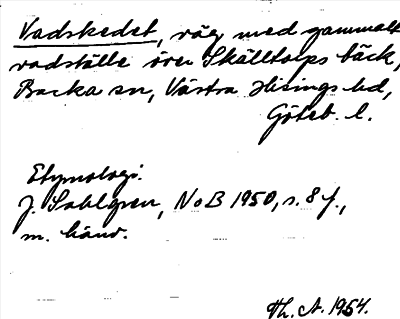 Vadskedet, väg med gammalt
vadställe över Skälltorps bäck,
Backa sn, Västra Hisings hd,
Göteb. l.
Etymologi.
J. Sahlgren, NoB 1950, s. 8 f.,
m. hänv.
Th. A. 1954.